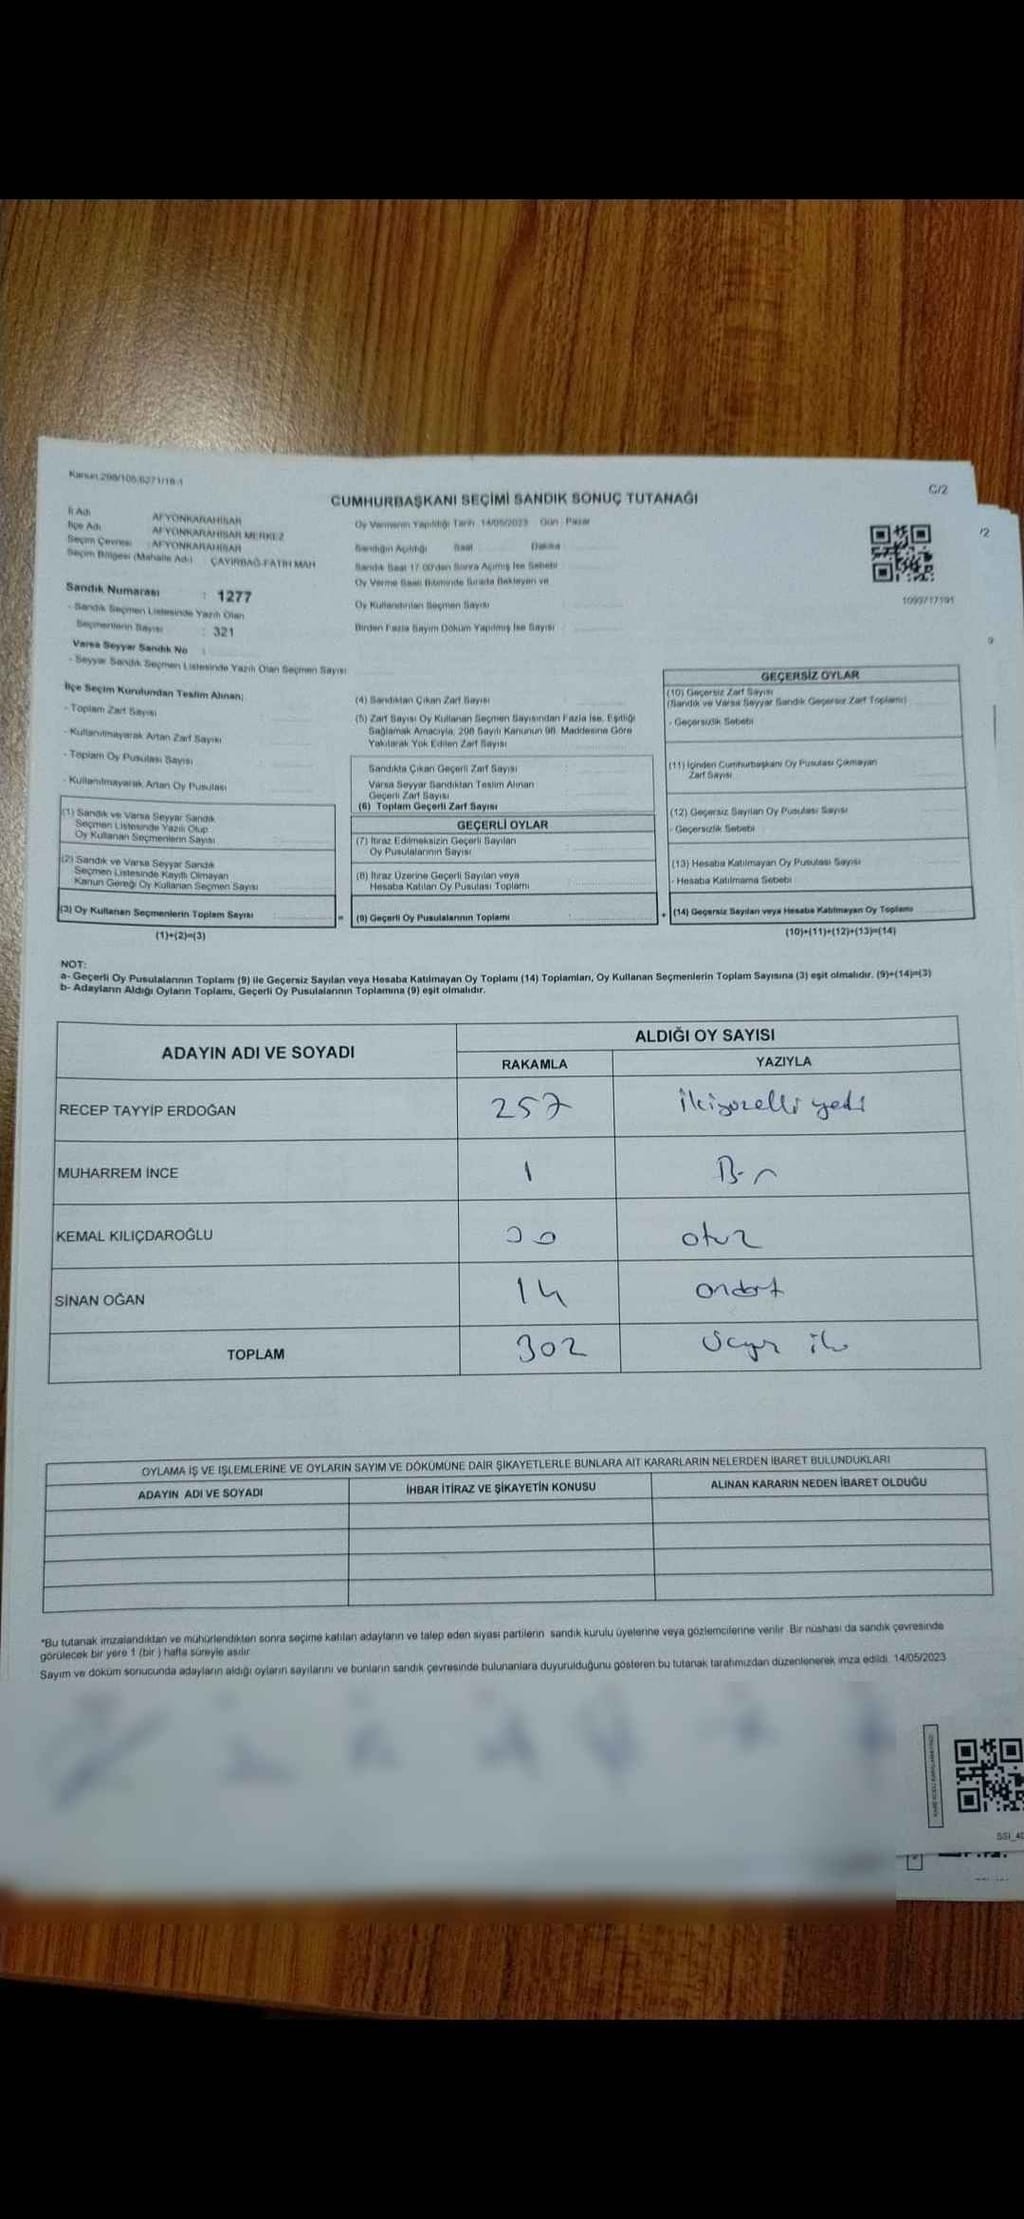 Kanun:298/105;6271/18-1
C/2
CUMHURBAŞKANI SEÇİMİ SANDIK SONUÇ TUTANAĞI
İl Adı AFYONKARAHİSAR
İlçe Adı AFYONKARAHİSAR MERKEZ
Seçim Çevresi AFYONKARAHİSAR
Seçim Bölgesi (Mahalle Adı) ÇAYIRBAĞ-FATİH MAH
Sandık Numarası : 1277
- Sandık Seçmen Listesinde Yazılı Olan
Seçmenlerin Sayısı : 321
Varsa Seyyar Sandık No
- Seyyar Sandık Seçmen Listesinde Yazılı Olan Seçmen Sayısı
Oy Vermenin Yapıldığı Tarih 14/05/2023 Gün Pazar
Sandığın Açıldığı Saat Dakika
Sandık Saat 17.00'den Sonra Açılmış İse Sebebi
Oy Verme Saati Bitiminde Sırada Bekleyen ve
Oy Kullandırılan Seçmen Sayısı
Birden Fazla Sayım Döküm Yapılmış İse Sayısı
/2
1099717191
İlçe Seçim Kurulundan Teslim Alınan;
- Toplam Zarf Sayısı
- Kullanılmayarak Artan Zarf Sayısı
- Toplam Oy Pusulası Sayısı
- Kullanılmayarak Artan Oy Pusulası
(1) Sandık ve Varsa Seyyar Sandık
Seçmen Listesinde Yazılı Olup
Oy Kullanan Seçmenlerin Sayısı
(2) Sandık ve Varsa Seyyar Sandık
Seçmen Listesinde Kayıtlı Olmayan
Kanun Gereği Oy Kullanan Seçmen Sayısı
(3) Oy Kullanan Seçmenlerin Toplam Sayısı
(1)+(2)=(3)
(4) Sandıktan Çıkan Zarf Sayısı
(5) Zarf Sayısı Oy Kullanan Seçmen Sayısından Fazla İse, Eşitliği
Sağlamak Amacıyla, 298 Sayılı Kanunun 98. Maddesine Göre
Yakılarak Yok Edilen Zarf Sayısı
Sandıkta Çıkan Geçerli Zarf Sayısı
Varsa Seyyar Sandıktan Teslim Alınan
Geçerli Zarf Sayısı
(6) Toplam Geçerli Zarf Sayısı
GEÇERLİ OYLAR
(7) İtiraz Edilmeksizin Geçerli Sayılan
Oy Pusulalarının Sayısı
(8) İtiraz Üzerine Geçerli Sayılan veya
Hesaba Katılan Oy Pusulası Toplamı
= (9) Geçerli Oy Pusulalarının Toplamı
GEÇERSİZ OYLAR
(10) Geçersiz Zarf Sayısı
(Sandık ve Varsa Seyyar Sandık Geçersiz Zarf Toplamı)
- Geçersizlik Sebebi
(11) İçinden Cumhurbaşkanı Oy Pusulası Çıkmayan
Zarf Sayısı
(12) Geçersiz Sayılan Oy Pusulası Sayısı
- Geçersizlik Sebebi
(13) Hesaba Katılmayan Oy Pusulası Sayısı
- Hesaba Katılmama Sebebi
+ (14) Geçersiz Sayılan veya Hesaba Katılmayan Oy Toplamı
(10)+(11)+(12)+(13)=(14)
NOT:
a- Geçerli Oy Pusulalarının Toplamı (9) ile Geçersiz Sayılan veya Hesaba Katılmayan Oy Toplamı (14) Toplamları, Oy Kullanan Seçmenlerin Toplam Sayısına (3) eşit olmalıdır. (9)+(14)=(3)
b- Adayların Aldığı Oyların Toplamı, Geçerli Oy Pusulalarının Toplamına (9) eşit olmalıdır.
ADAYIN ADI VE SOYADI
ALDIĞI OY SAYISI
RAKAMLA YAZIYLA
RECEP TAYYİP ERDOĞAN 257 ikiyüzelli yedi
MUHARREM İNCE 1 Bir
KEMAL KILIÇDAROĞLU 30 otuz
SİNAN OĞAN 14 ondört
TOPLAM 302 Üçyüz iki
OYLAMA İŞ VE İŞLEMLERİNE VE OYLARIN SAYIM VE DÖKÜMÜNE DAİR ŞİKAYETLERLE BUNLARA AİT KARARLARIN NELERDEN İBARET BULUNDUKLARI
ADAYIN ADI VE SOYADI İHBAR İTİRAZ VE ŞİKAYETİN KONUSU ALINAN KARARIN NEDEN İBARET OLDUĞU
*Bu tutanak imzalandıktan ve mühürlendikten sonra seçime katılan adayların ve talep eden siyasi partilerin sandık kurulu üyelerine veya gözlemcilerine verilir. Bir nüshası da sandık çevresinde
görülecek bir yere 1 (bir ) hafta süreyle asılır
Sayım ve döküm sonucunda adayların aldığı oyların sayılarını ve bunların sandık çevresinde bulunanlara duyurulduğunu gösteren bu tutanak tarafımızdan düzenlenerek imza edildi. 14/05/2023